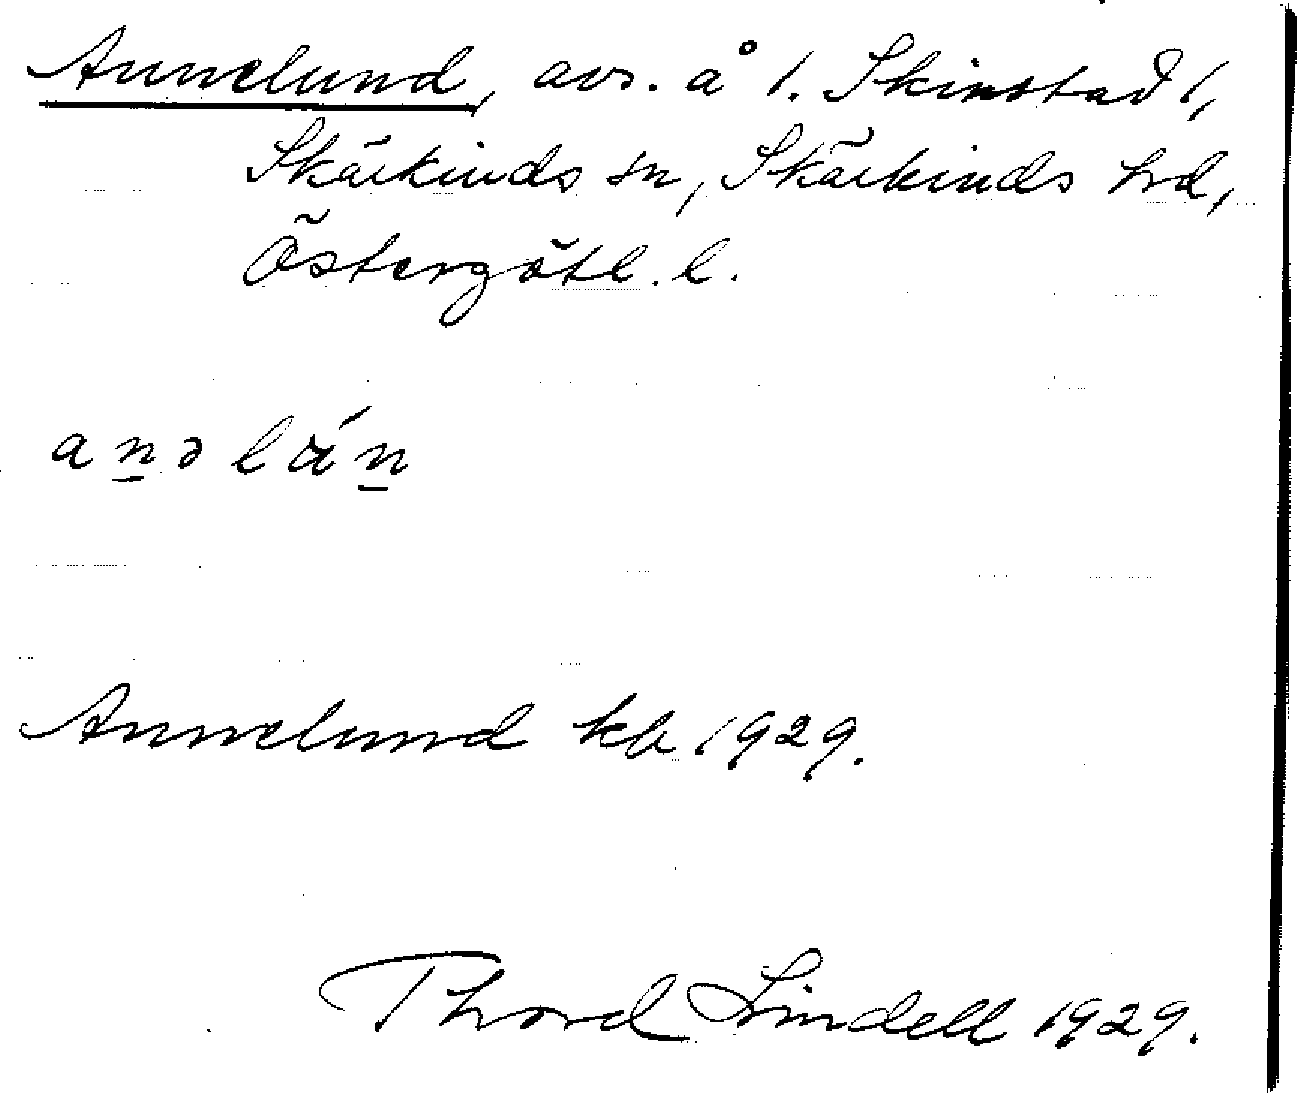 Annelund, avs. å 1. Skinstad 1,
Skärkinds sn, Skärkinds hd,
Östergötl. l.
anəlán
Annelund kb 1929.
Thord Lindell 1929.